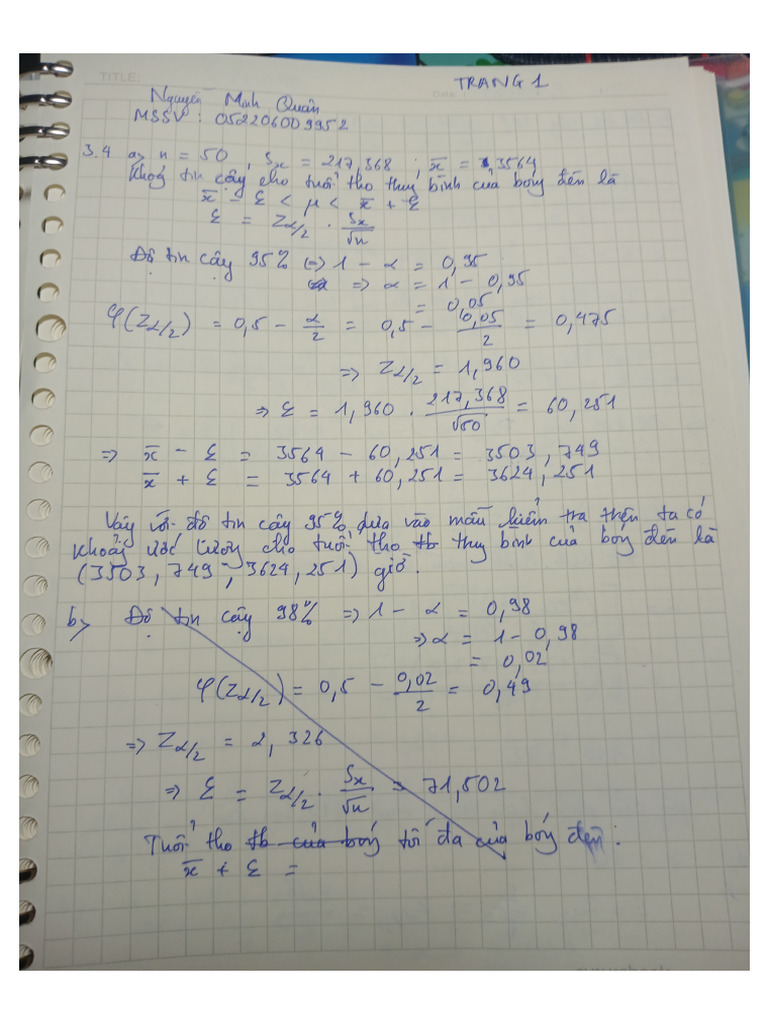 TITLE:
TRANG 1
Nguyễn Minh Quân
MSSV : 052206009952
3.4 a> n = 50, Sx = 217,368 ; x̄ = 3564
Khoảng tin cậy cho tuổi thọ trung bình của bóng đèn là
x̄ - ε < μ < x̄ + ε
ε = Zα/2 . Sx/√n
Độ tin cậy 95% => 1 - α = 0,95
=> α = 1 - 0,95
= 0,05
φ(Zα/2) = 0,5 - α/2 = 0,5 - 0,05/2 = 0,475
=> Zα/2 = 1,960
=> ε = 1,960 . 217,368/√50 = 60,251
=> x̄ - ε = 3564 - 60,251 = 3503,749
x̄ + ε = 3564 + 60,251 = 3624,251
Vậy với độ tin cậy 95% dựa vào mẫu kiểm tra trên ta có
khoảng ước lượng cho tuổi thọ tb trung bình của bóng đèn là
(3503,749 ; 3624,251) giờ.
b> Độ tin cậy 98% => 1 - α = 0,98
=> α = 1 - 0,98
= 0,02
φ(Zα/2) = 0,5 - 0,02/2 = 0,49
=> Zα/2 = 2,326
=> ε = Zα/2 . Sx/√n = 71,502
Tuổi thọ tb của bóng tối đa của bóng đèn :
x̄ + ε =